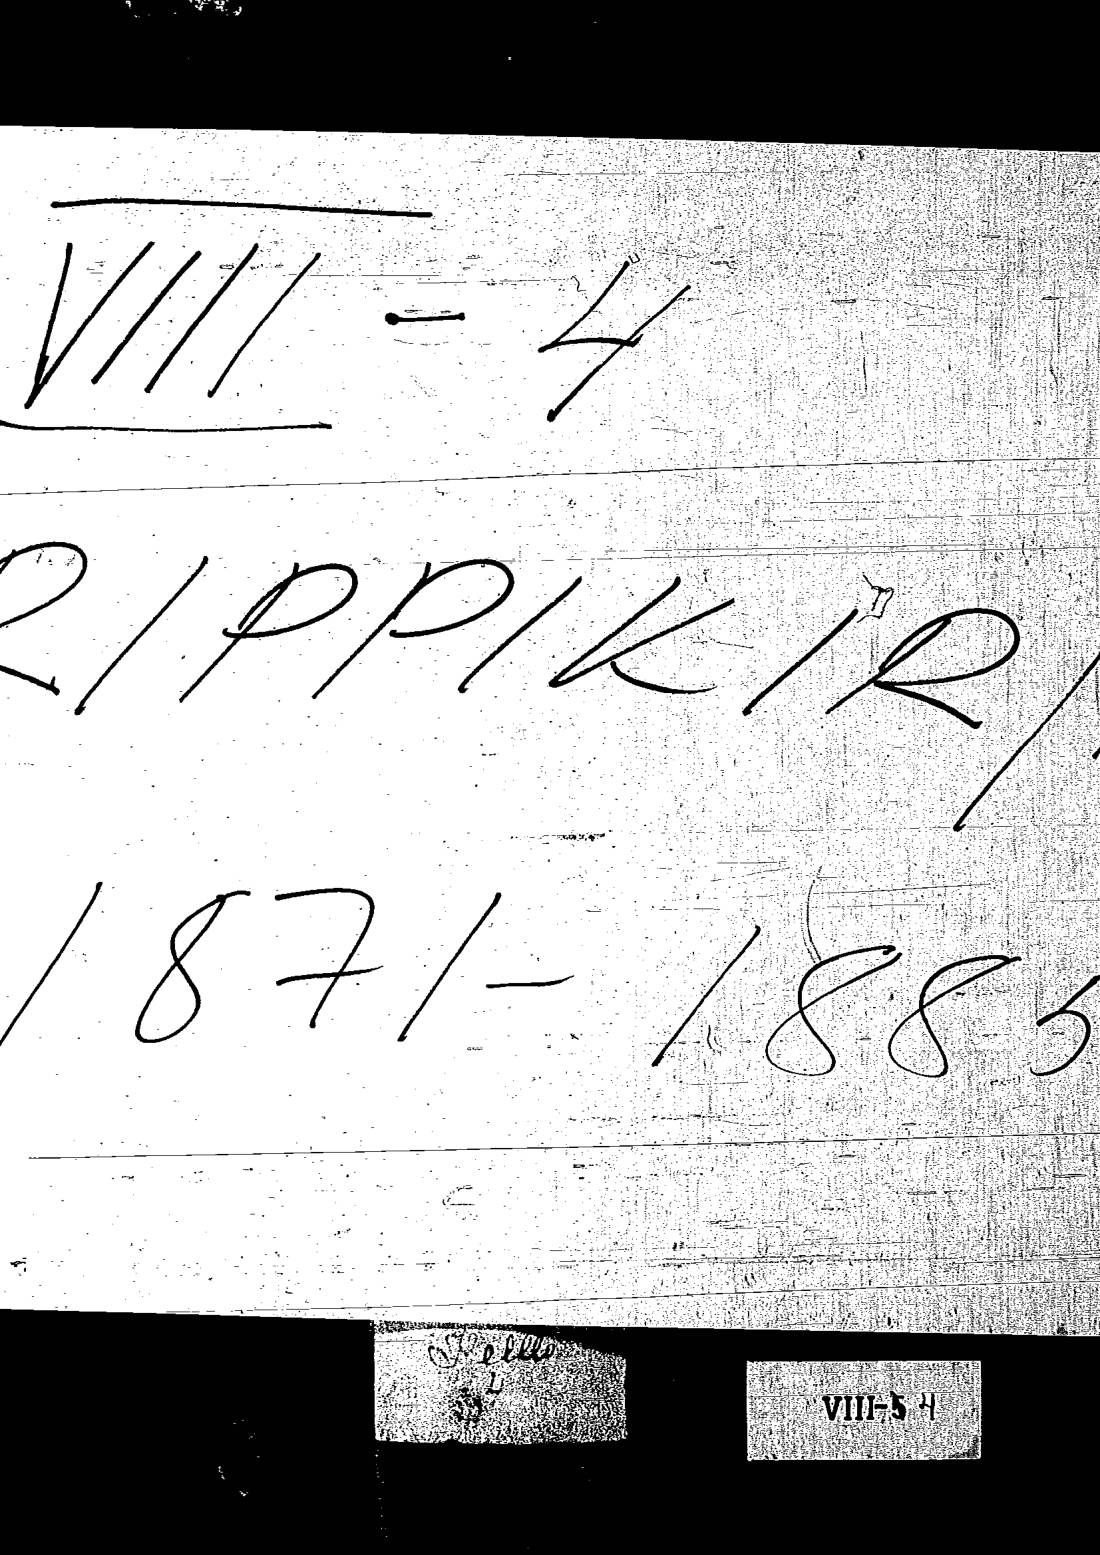 VIII - 4
RIPPIKIRJ
1871-1885
VIII-5 4